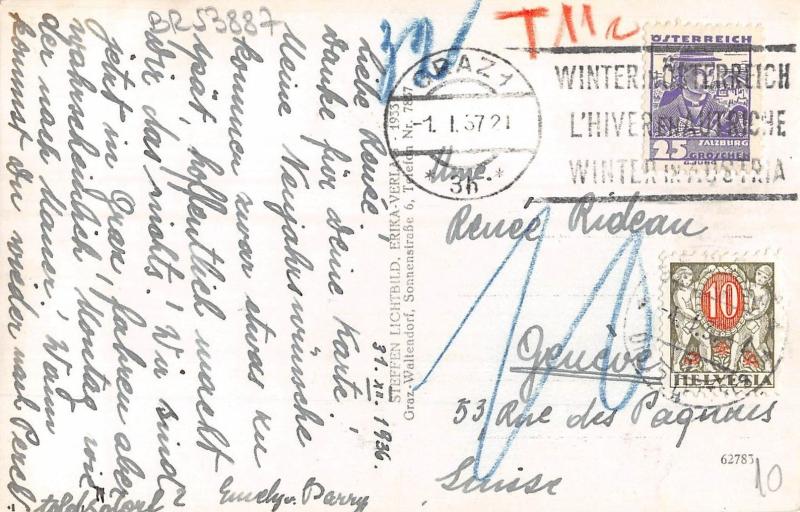 BR53887
32
T 11 c
GRAZ 1
-1. I. 37 21
* 3h *
WINTER IN ÖSTERREICH
L'HIVER EN AUTRICHE
WINTER IN AUSTRIA
ÖSTERREICH
SALZBURG
25 GROSCHEN
Mme.
Renée Rideau
Genève
53, Rue des Paquais
Suisse
10
HELVETIA
62783
10
STEFFEN LICHTBILD, ERIKA-VERLAG 1933
Graz-Waltendorf, Sonnenstraße 6, Telefon Nr. 7887
31. XII. 1936.
Liebe Renée,
danke für deine Karte!
Meine Neujahrswünsche
kommen zwar etwas zu
spät, hoffentlich macht
dir das nichts! Wir sind
jetzt in Graz, fahren aber
wahrscheinlich Montag wie
der nach Mauer. Wann
kommst du wieder nach
Emely v. Barry